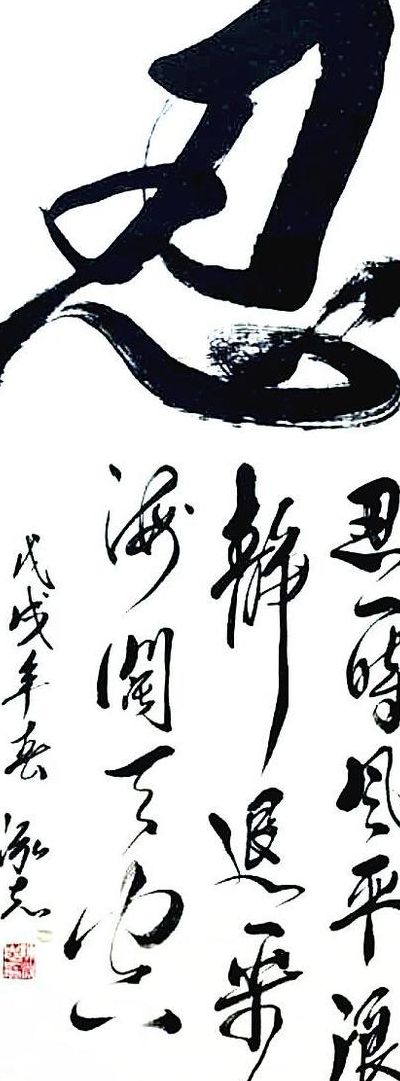 忍
忍一時风平浪
静退一步
海闊天空
戊戌年春